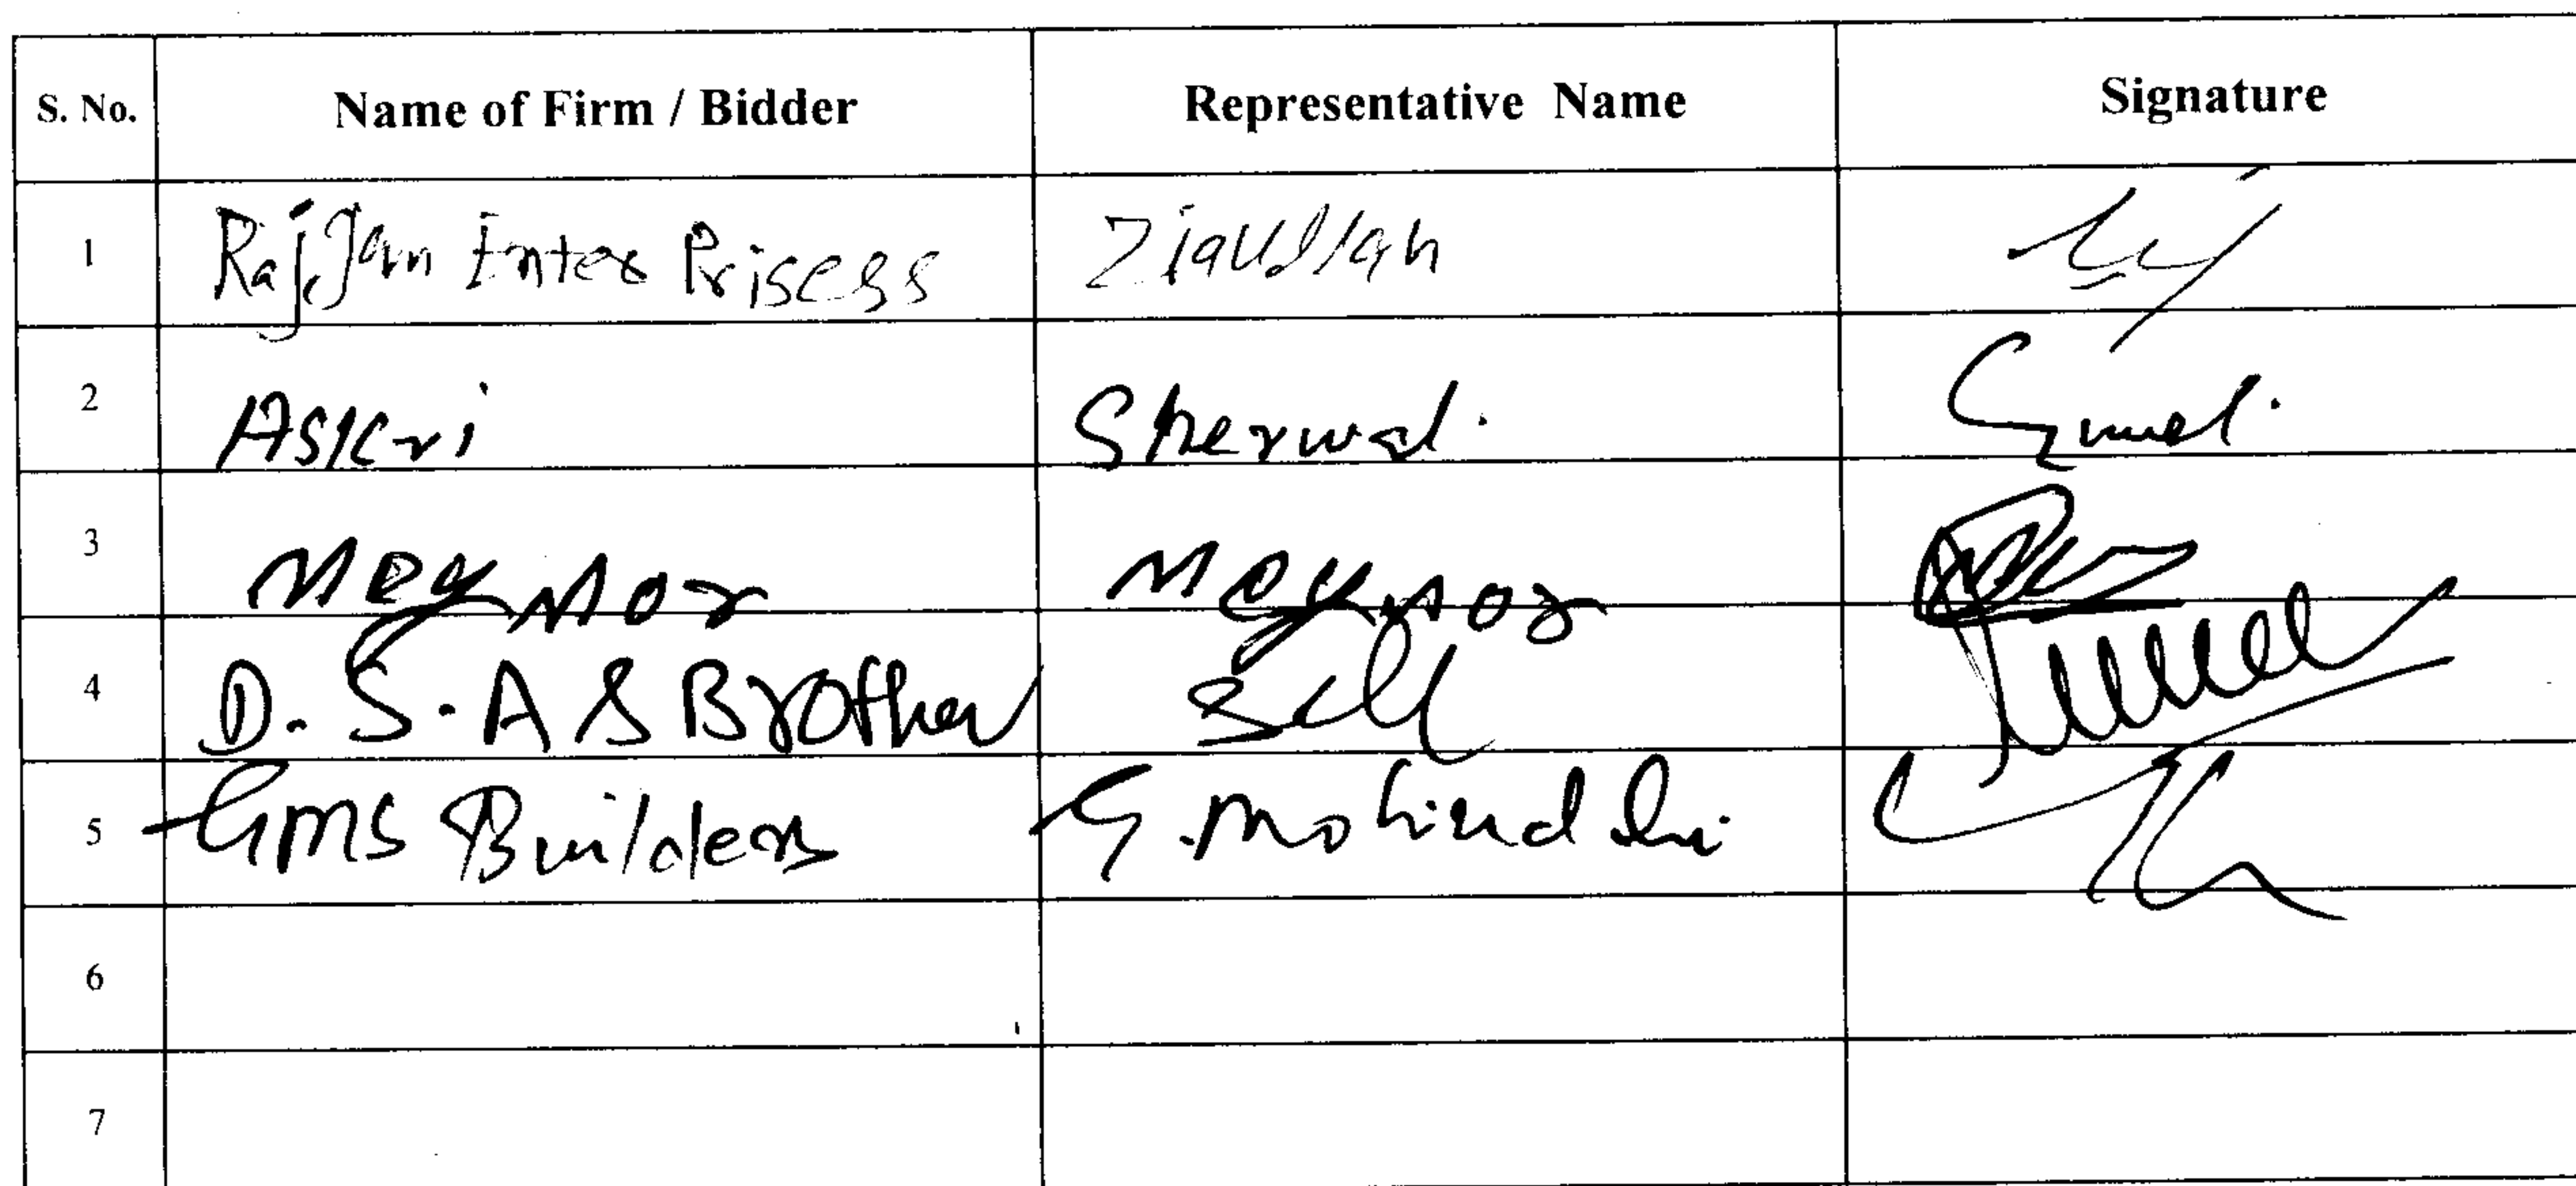 S. No. Name of Firm / Bidder Representative Name Signature
1 Raj Jan Enter Prisess Ziaullah
2 Askri Sherwali
3
4 D. S. A & Brother
5 GMS Builders G. Mohiuddin
6
7